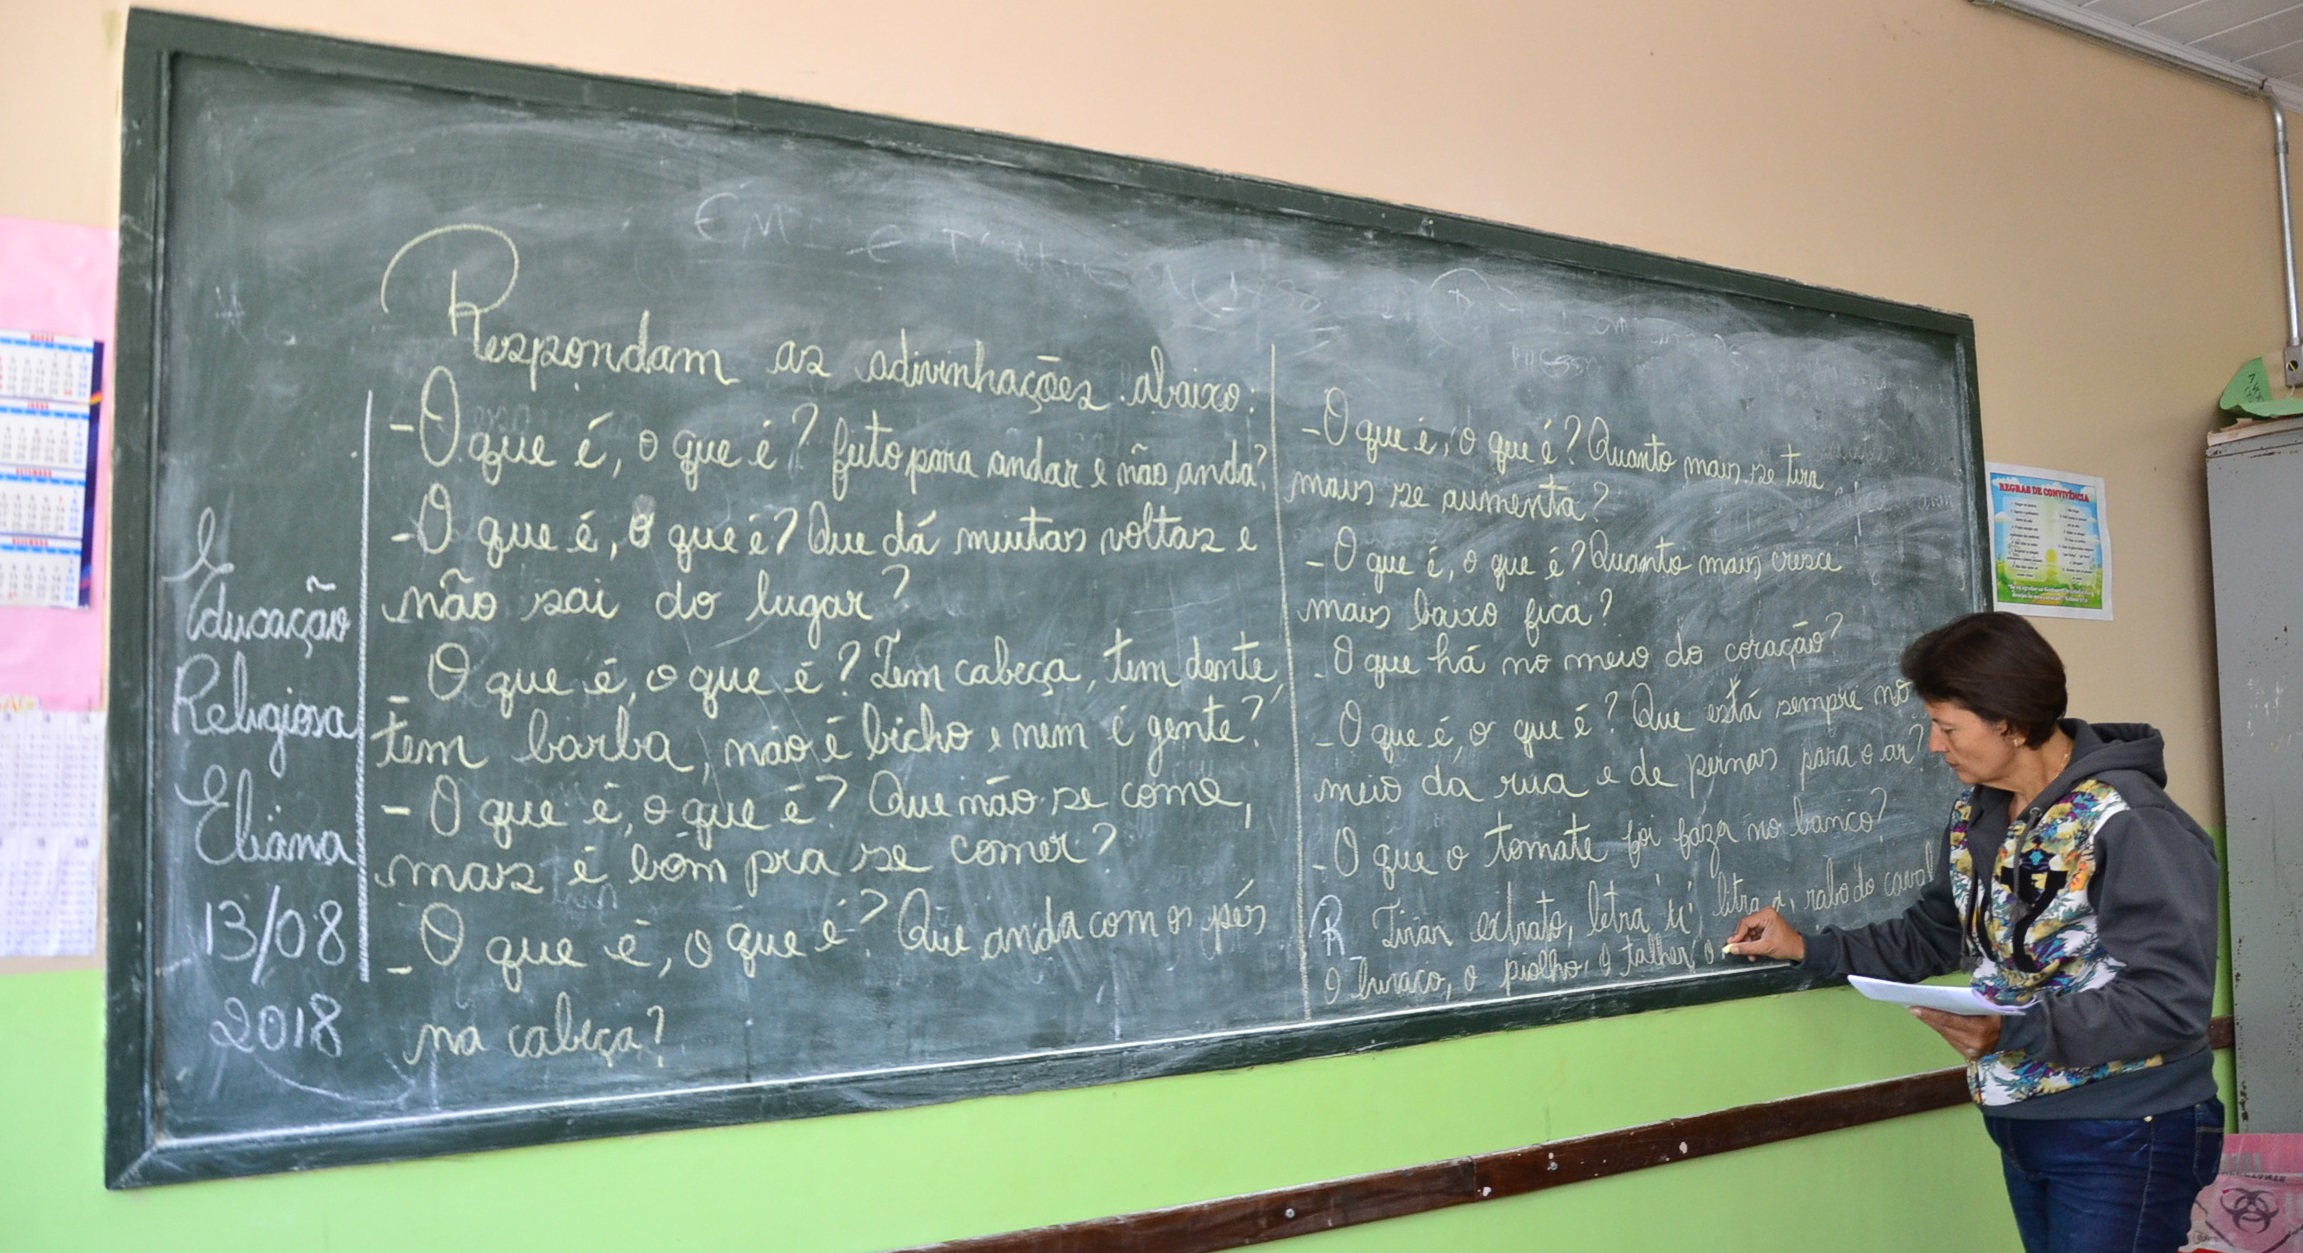 Respondam as adivinhações abaixo:
- O que é, o que é? feito para andar e não anda?
- O que é, o que é? Que dá muitas voltas e
não sai do lugar?
- O que é, o que é? Tem cabeça, tem dente,
tem barba, não é bicho e nem é gente?
- O que é, o que é? Que não se come,
mas é bom pra se comer?
- O que é, o que é? Que anda com os pés
na cabeça?
Educação
Religiosa
Eliana
13/08
2018
- O que é, o que é? Quanto mais se tira
mais se aumenta?
- O que é, o que é? Quanto mais cresce
mais baixo fica?
- O que há no meio do coração?
- O que é, o que é? Que está sempre no
meio da rua e de pernas para o ar?
- O que o tomate foi fazer no banco?
R_ Tirar extrato, letra u, letra a, rabo do caval
O buraco, o piolho, o talher, o
REGRAS DE CONVIVÊNCIA